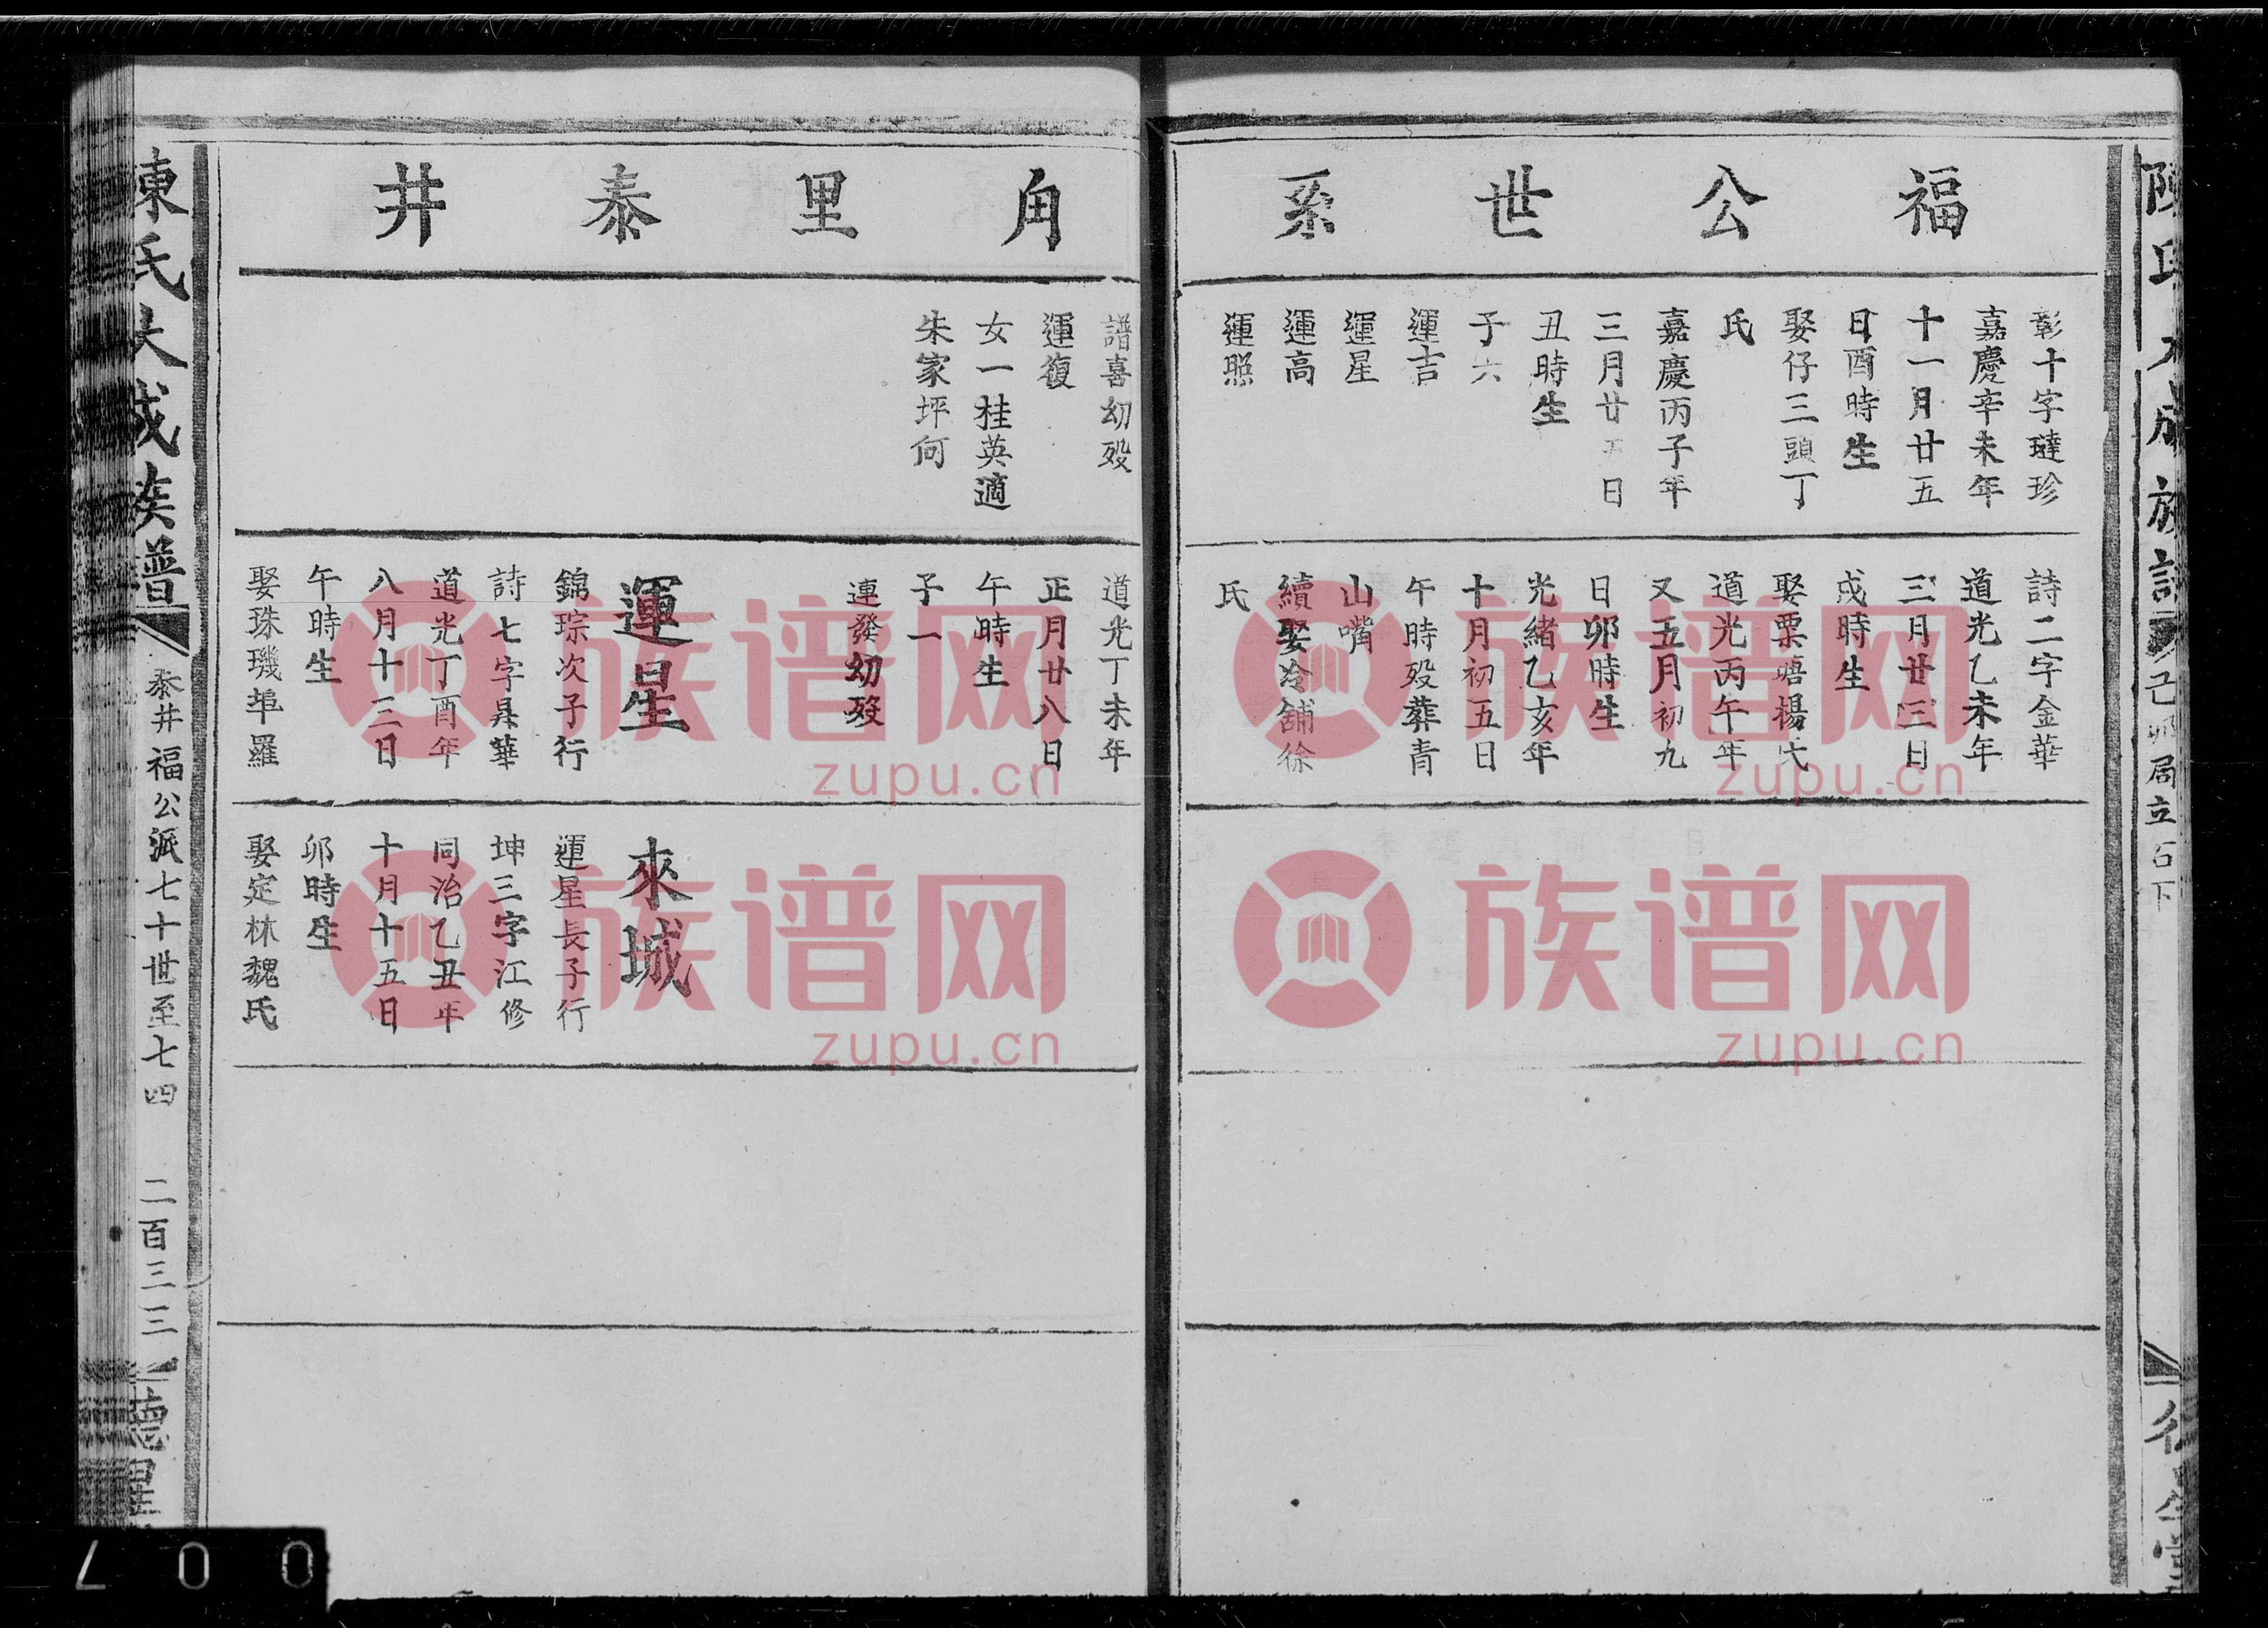 福公世系
彰十字璉珍
嘉慶辛未年
十一月廿五
日酉時生
娶仔三頭丁
氏
嘉慶丙子年
三月廿五日
丑時生
子六
運吉
運星
運高
運照
詩二字金華
道光乙未年
三月廿三日
戌時生
娶栗塘楊氏
道光丙午年
又五月初九
日卯時生
光緒乙亥年
十月初五日
午時歿葬青
山嘴
續娶冷舖徐
氏
角里泰井
譜喜幼歿
運復
女一桂英適
朱家坪何
道光丁未年
正月廿八日
午時生
子一
連發幼歿
運星
錦琮次子行
詩七字昇華
道光丁酉年
八月十三日
午時生
娶珠璣埠羅
來城
運星長子行
坤三字江修
同治乙丑年
十月十五日
卯時生
娶定林魏氏
陳氏大成族譜
泰井福公派七十世至七四
二百三三
德星
陳氏大成族譜
己卯局立石下
族谱网
zupu.cn
族谱网
zupu.cn
族谱网
zupu.cn
族谱网
zupu.cn
700